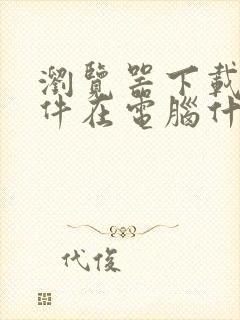 瀏覽器下載
件在電腦什
代俊